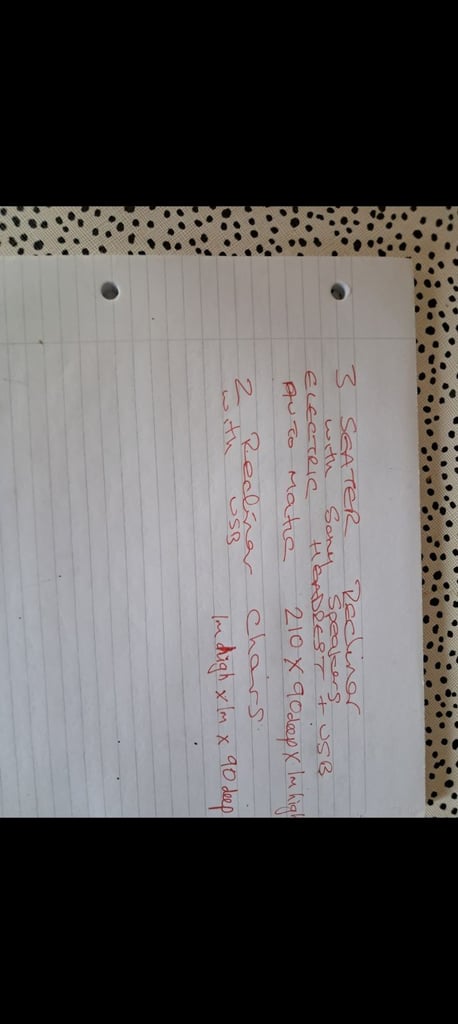 3 SEATER Recliner
with Sony Speakers
ELECTRIC HEADREST + USB
AUTO MATIC 210 X 90 deep X 1m high
2 Recliner chars.
with USB 1m high x 1m x 90 deep